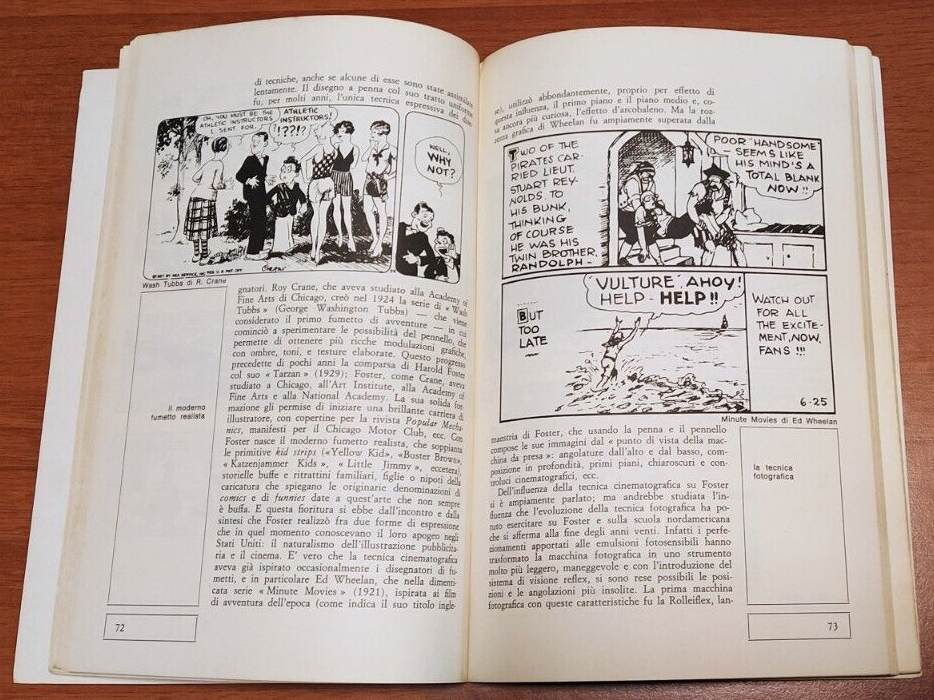 di tecniche, anche se alcune di esse sono state assimilate
lentamente. Il disegno a penna col suo tratto uniforme
fu, per molti anni, l'unica tecnica espressiva dei dise-
OH, YOU MUST BE THE
ATHLETIC INSTRUCTORS
I SENT FOR.
ATHLETIC
INSTRUCTORS!
!??!?
WELL,
WHY
NOT?
CRANE
Wash Tubbs di R. Crane
gnatori. Roy Crane, che aveva studiato alla Academy of
Fine Arts di Chicago, creò nel 1924 la serie di «Wash
Tubbs» (George Washington Tubbs) — che viene
considerato il primo fumetto di avventure — in cui
cominciò a sperimentare le possibilità del pennello, che
permette di ottenere più ricche modulazioni grafiche,
con ombre, toni, e testure elaborate. Questo progresso
precedette di pochi anni la comparsa di Harold Foster
col suo «Tarzan» (1929); Foster, come Crane, aveva
studiato a Chicago, all'Art Institute, alla Academy of
Fine Arts e alla National Academy. La sua solida for-
mazione gli permise di iniziare una brillante carriera di
illustratore, con copertine per la rivista Popular Mecha-
nics, manifesti per il Chicago Motor Club, ecc. Con
Foster nasce il moderno fumetto realista, che soppianta
le primitive kid strips («Yellow Kid», «Buster Brown»,
«Katzenjammer Kids», «Little Jimmy», eccetera),
storielle buffe e ritrattini familiari, figlie o nipoti della
caricatura che spiegano le originarie denominazioni di
comics e di funnies date a quest'arte che non sempre
è buffa. E questa fioritura si ebbe dall'incontro e dalla
sintesi che Foster realizzò fra due forme di espressione
che in quel momento conoscevano il loro apogeo negli
Stati Uniti: il naturalismo dell'illustrazione pubblicita-
ria e il cinema. E' vero che la tecnica cinematografica
aveva già ispirato occasionalmente i disegnatori di fu-
metti, e in particolare Ed Wheelan, che nella dimenti-
cata serie «Minute Movies» (1921), ispirata ai film
di avventura dell'epoca (come indica il suo titolo ingle-
Il moderno
fumetto realista
72
se), utilizzò abbondantemente, proprio per effetto di
questa influenza, il primo piano e il piano medio e, co-
sa ancora più curiosa, l'effetto d'arcobaleno. Ma la roz-
zezza grafica di Wheelan fu ampiamente superata dalla
TWO OF THE
PIRATES CAR-
RIED LIEUT.
STUART REY-
NOLDS, TO
HIS BUNK,
THINKING
OF COURSE
HE WAS HIS
TWIN BROTHER,
RANDOLPH -
POOR "HANDSOME"
- SEEMS LIKE
HIS MIND'S A
TOTAL BLANK
NOW !!
BUT
TOO
LATE
"VULTURE" AHOY!
HELP - HELP!!
WATCH OUT
FOR ALL
THE EXCITE-
MENT, NOW,
FANS !!!
6-25
Minute Movies di Ed Wheelan
maestria di Foster, che usando la penna e il pennello
compose le sue immagini dal «punto di vista della mac-
china da presa»: angolature dall'alto e dal basso, com-
posizione in profondità, primi piani, chiaroscuri e con-
troluci cinematografici, ecc.
Dell'influenza della tecnica cinematografica su Foster
si è ampiamente parlato; ma andrebbe studiata l'in-
fluenza che l'evoluzione della tecnica fotografica ha po-
tuto esercitare su Foster e sulla scuola nordamericana
che si afferma alla fine degli anni venti. Infatti i perfe-
zionamenti apportati alle emulsioni fotosensibili hanno
trasformato la macchina fotografica in uno strumento
molto più leggero, maneggevole e con l'introduzione del
sistema di visione reflex, si sono rese possibili le posi-
zioni e le angolazioni più insolite. La prima macchina
fotografica con queste caratteristiche fu la Rolleiflex, lan-
la tecnica
fotografica
73